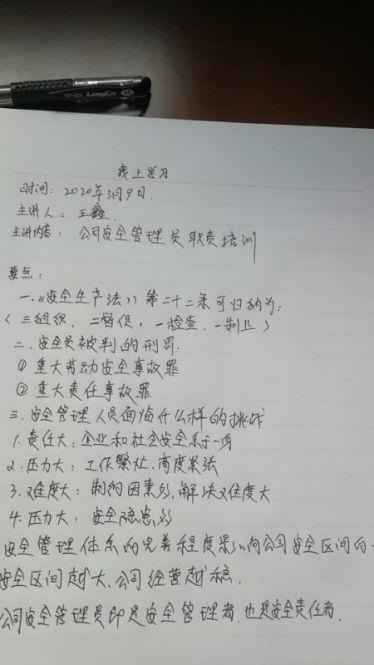 LongCn
线上学习
时间：2020年3月9日.
主讲人：王鑫
主讲内容：公司安全管理员职责培训
要点：
一.《安全生产法》第二十二条可归纳为：
（三组织、二督促，一检查.一制止）
二.安全员被判的刑罪.
① 重大劳动安全事故罪
② 重大责任事故罪
三.安全管理人员面临什么样的挑战
1.责任大：企业和社会安全系于一身
2.压力大：工作繁忙，高度紧张
3.难度大：制约因素多，解决难度大
4.压力大：安全隐患多
安全管理体系的完善程度影响公司安全区间的
安全区间越大，公司经营越稳.
公司安全管理员即是安全管理者，也是安全责任者.